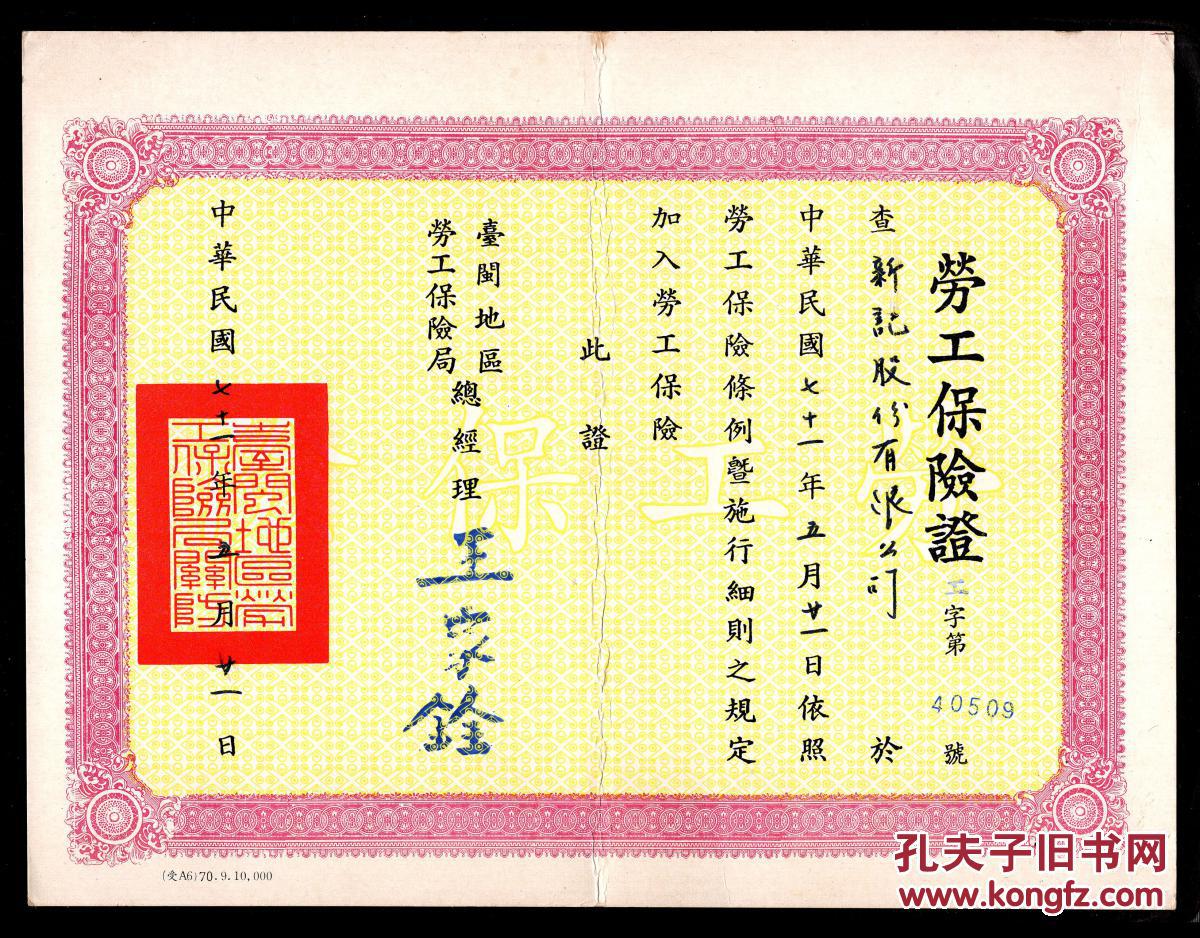 勞工保險證
工字第40509號
查新記股份有限公司於
中華民國七十一年五月廿一日依照
勞工保險條例暨施行細則之規定
加入勞工保險
此證
臺閩地區
勞工保險局
總經理
王家銓
中華民國七十一年五月廿一日
臺閩地區勞
工保險局關防
勞工保險
(受A6)70.9.10,000
孔夫子旧书网
www.kongfz.com